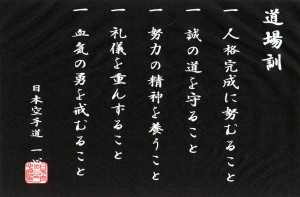 道場訓
一 人格完成に努むること
一 誠の道を守ること
一 努力の精神を養うこと
一 礼儀を重んずること
一 血気の勇を戒むること
日本空手道 一